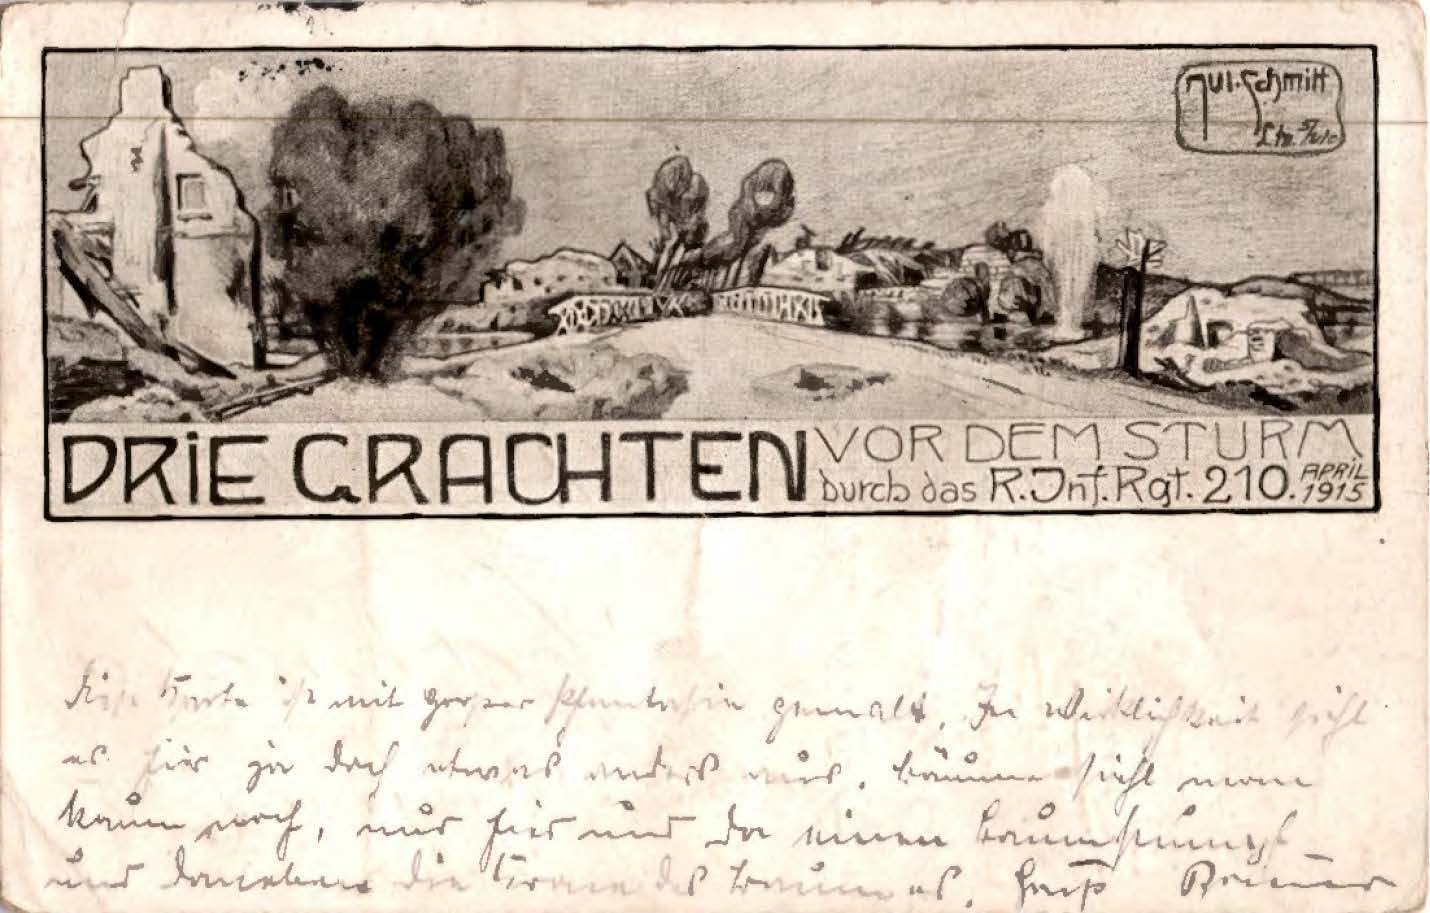 Jul. Schmitt
DRIE GRACHTEN VOR DEM STURM
durch das R. Inf. Rgt. 210. APRIL 1915
Diese Karte ist mit großer Phantasie gemalt. In Wirklichkeit sieht
es hier ja doch etwas anders aus. Bäume sieht man
kaum noch, nur hier und da einen Baumstumpf
und daneben die Krone des Baumes. Gruß